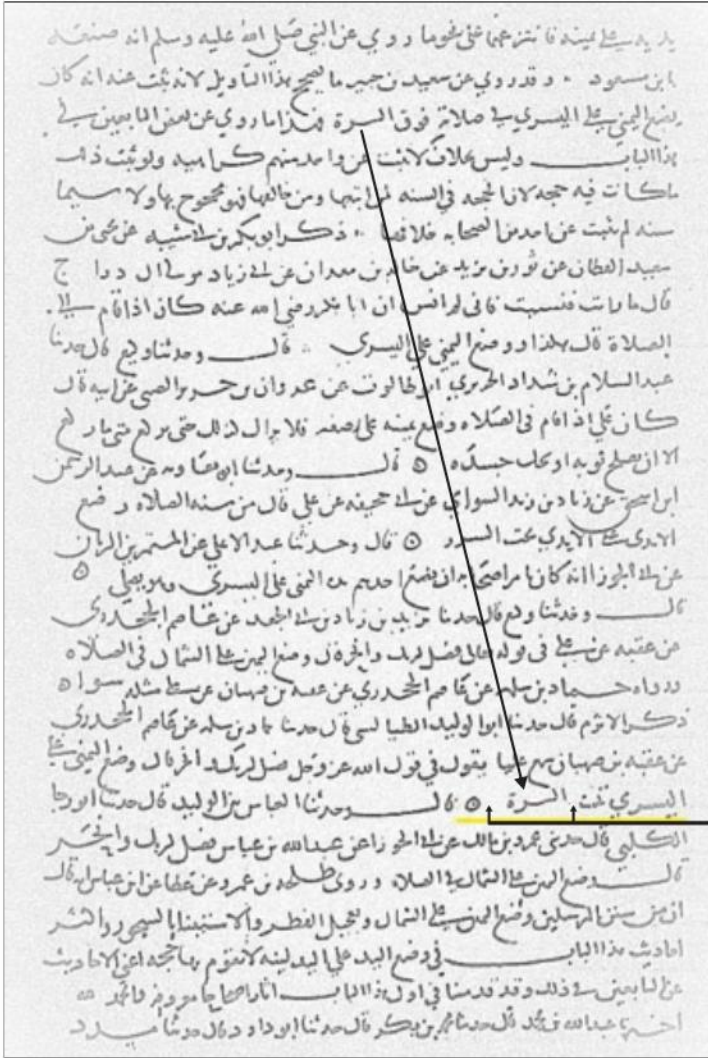 يديه على يمينه فانتزعها على نحو ما روي عن النبي صلى الله عليه وسلم انه صنعه
بابن مسعود وقد روي عن سعيد بن جبير ما يصحح هذا التاويل لانه ثبت عنه انه كان
يضع اليمنى على اليسرى في صلاته فوق السرة فهذا ما روي عن بعض التابعين في
هذا الباب وليس بخلاف لانه لا يثبت عن واحد منهم كراهية ولو ثبت ذلك
ما كانت فيه حجة لان الحجة في السنة لمن اتبعها ومن خالفها فهو محجوج بها ولا سيما
سنة لم يثبت عن احد من الصحابة خلافها ذكر ابو بكر بن ابي شيبة عن يحيى بن
سعيد القطان عن ثور بن يزيد عن خالد بن معدان عن ابي زياد مولى ال دراج
قال ما رايت فنسيت فاني لم انس ان ابا بكر رضي الله عنه كان اذا قام الى
الصلاة قال هكذا ووضع اليمنى على اليسرى قال وحدثنا وكيع قال حدثنا
عبد السلام بن شداد الجريري ابو طالوت عن غزوان بن جرير الضبي عن ابيه قال
كان علي اذا قام في الصلاة وضع يمينه على رصغه فلا يزال كذلك حتى يركع متى ما ركع
الا ان يصلح ثوبه او يحك جسده قال وحدثنا ابو معاوية عن عبد الرحمن
ابن اسحق عن زياد بن زيد السوائي عن ابي جحيفة عن علي قال من سنة الصلاة وضع
الايدي على الايدي تحت السرر قال وحدثنا عبد الاعلى عن المستمر بن الريان
عن ابي الجوزا انه كان يامر اصحابه ان يضع احدهم يده اليمنى على اليسرى وهو يصلي
قال وحدثنا وكيع قال حدثنا يزيد بن زياد بن ابي الجعد عن عاصم الجحدري
عن عقبة عن علي في قوله تعالى فصل لربك وانحر قال وضع اليمين على الشمال في الصلاة
ورواه حماد بن سلمة عن عاصم الجحدري عن عقبة بن صهبان عن علي مثله سوا
ذكر الاثرم قال حدثنا ابو الوليد الطيالسي قال حدثنا حماد بن سلمة عن عاصم الجحدري
عن عقبة بن صهبان سمع عليا يقول في قول الله عز وجل فصل لربك وانحر قال وضع اليمنى على
اليسرى تحت السرة قال وحدثنا العباس بن الوليد قال حدثنا ابو رجا
الكلبي قال حدثني عمرو بن مالك عن ابي الجوزا عن عبد الله بن عباس فصل لربك وانحر
قال وضع اليمين على الشمال في الصلاة وروى طلحة بن عمرو عن عطا عن ابن عباس انه قال
ان من سنن المرسلين وضع اليمين على الشمال وتعجيل الفطر والاستيناء بالسحور واكثر
احاديث هذا الباب في وضع اليد على اليد لينة لا تقوم بها حجة اعني الاحاديث
عن التابعين في ذلك وقد قدمنا في اول هذا الباب اثارا صحاحا مرفوعة والحمد لله
اخبرنا عبد الله بن محمد قال حدثنا محمد بن بكر قال حدثنا ابو داود قال حدثنا مسدد